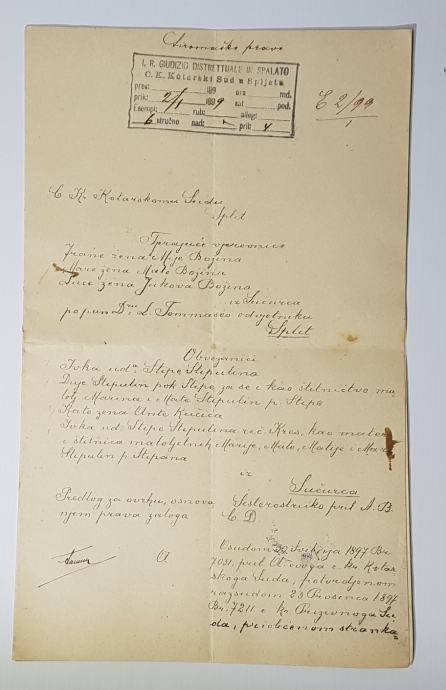 Siromaško pravo
I. R. GIUDIZIO DISTRETTUALE IN SPALATO
C. K. Kotarski Sud u Spljetu
pres: 189 ora md.
prik: 2/1 1899 sat pod.
Esempl: rub: alleg:
6 stručno nadt: pril: 4
E 2/99
1
C. Kr. Kotarskomu Sudu
Split
Tražeće vjerovnice
žena Mije Božina
Mare žena Mate Božina
Luce žena Jakova Božina
iz Sućurca
po pun Dru L. Tommaseo odvjetniku
Split
Obvezanici
Ivka ud.a Stipe Stiputina
Duje Stiputin pok Stipe za se i kao štitnictvo ma
lolj Marina i Mate Stiputin p. Stipe
Kate žena Ante Kučića
Ivka ud. Stipe Stiputina reč. Kres, kao mater
i štitnica maloljetnih Marije, Mate, Matije i Mare
Stiputin p. Stipana
iz
Sućurca
Predlog za ovrhu, osnova
njem prava zaloga
Šesterostruko pril A. B.
C. D
A
Osudom 30 Svibnja 1897 Br.
7031, pril A ovoga c. kr. Kotar
skoga Suda, potvrdjenom
razsudom 23 Prosinca 1897
Br. 7211 c. kr. Prizivnoga Su
da, priobćenom stranka